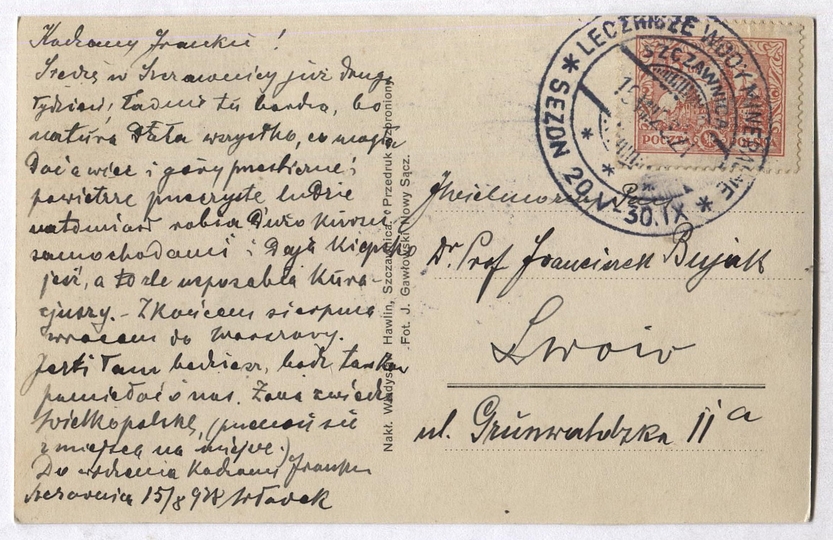 Kochany Franku!
Siedzę w Szczawnicy już drugi
tydzień. Ładnie tu bardzo, bo
natura dała wszystko, co mogła
dać a więc i góry prześliczne i
powietrze przeczyste ludzie
natomiast robią dużo kurzu
samochodami i dają kiepsko
jeść, a to źle usposabia kura-
cjuszy. - Z końcem sierpnia
wracam do Warszawy.
Jeśli tam będziesz, bądź łaskaw
pamiętać o nas. Żona zwiedza
Wielkopolskę, (przenosi się
z miejsca na miejsce.)
Do widzenia Kochany Franku
Szczawnica 15/8 928 Władek
Nakł. Hawlin, Szczawnica. Przedruk wzbroniony
Fot. J. Gawłowski Nowy Sącz.
* LECZNICZE WODY MINERALNE * SEZON 20.V-30.IX
SZCZAWNICA
POCZTA POLSKA
Jwielmożny Pan
Dr. Prof Franciszek Bujak
Lwów
ul. Grunwaldzka 11a